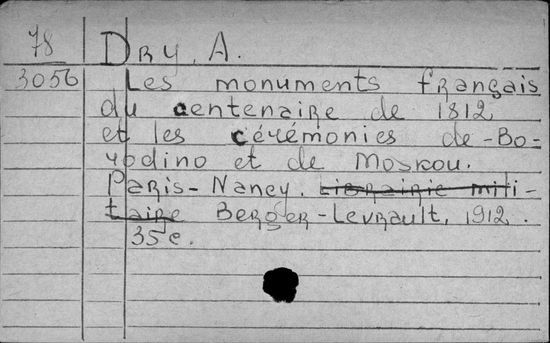 78 Dry, A.
3056 Les monuments français
du centenaire de 1812
et les cérémonies de Bo=
rodino et de Moskou.
Paris-Nancy. Librairie mili-
taire Berger-Levrault, 1912.
35 c.